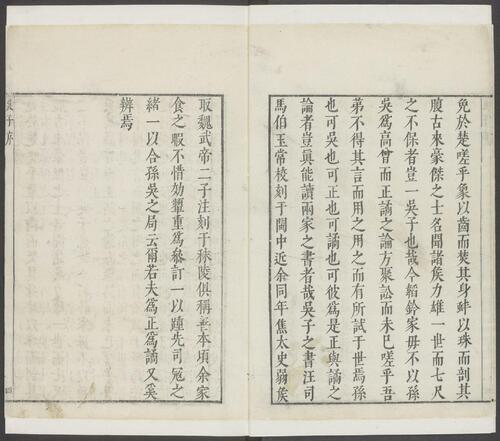 免於楚嗟乎象以齒而焚其身蚌以珠而剖其
腹古來豪傑之士名聞諸侯力雄一世而七尺
之不保者豈一吳子也哉今韜鈐家毋不以孫
吳爲高曾而正譎之論方聚訟而未已嗟乎吾
弟不得其言而用之用之而有所試于世焉孫
也可吳也可正也可譎也可彼爲是正與譎之
論者豈真能讀兩家之書者哉吳子之書汪司
馬伯玉常校刻于閩中近余同年焦太史弱侯
取魏武帝二子注刻于秣陵俱稱善本頃余家
食之暇不惜効顰重爲叅訂一以踵先司冦之
緒一以合孫吳之局云爾若夫爲正爲譎又奚
辨焉
吳子序